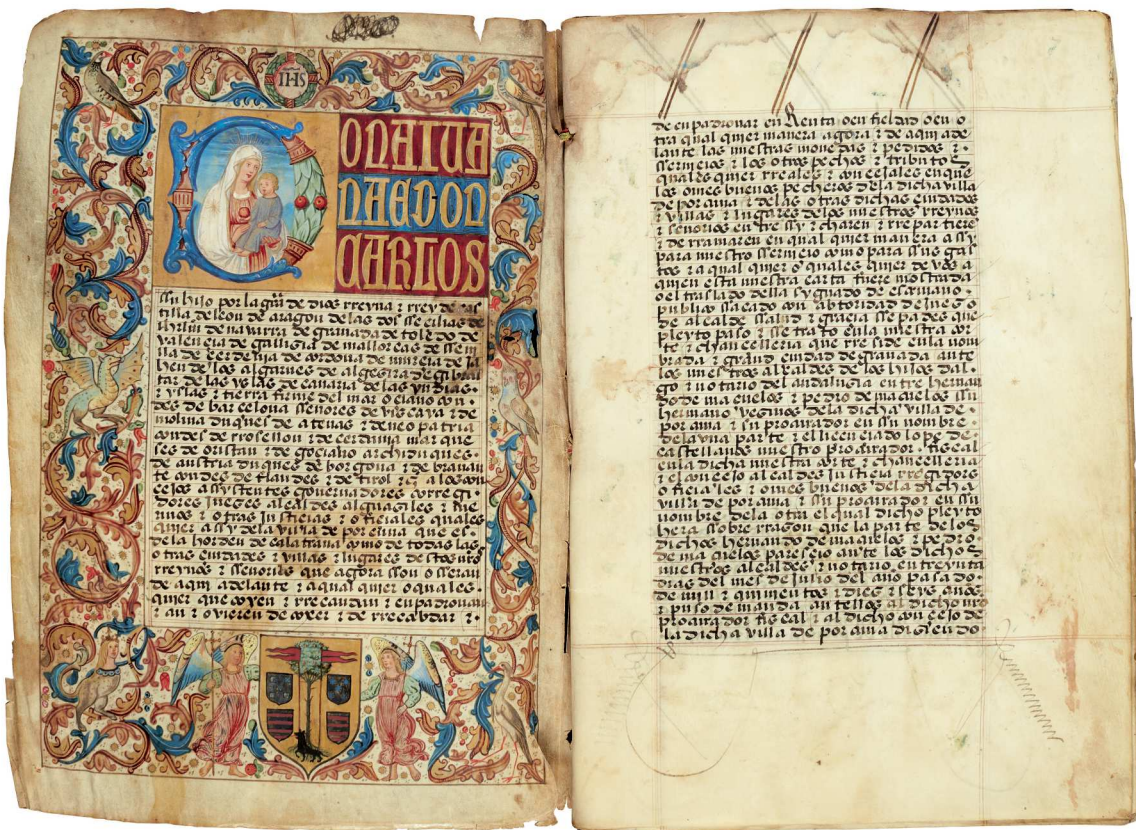 IHS
ONA IUA
NA E DON
CARLOS
ssu hijo por la grã de dios rreyna ⁊ rrey de cas
tilla de leon de aragon de las dos seçilias de
ihrl̃m de navarra de granada de toledo de
valençia de galliçia de mallorcas de sevi
lla de çerdenia de cordova de murçia de ja
hen de los algarves de algezira de gibral
tar de las yslas de canaria de las yndias
⁊ yslas ⁊ tierra firme del mar oçiano con
des de barçelona señores de viscaya ⁊ de
molina duques de atenas ⁊ de neopatria
condes de rrosellon ⁊ de çerdania marque
ses de oristan ⁊ de goçiano archiduques
de austria duques de borgoña ⁊ de bravan
te condes de flandes ⁊ de tirol ⁊ç̃ a los con
çejos assystentes governadores corregi
dores jueçes alcaldes alguaçiles ⁊ me
rinos ⁊ otras justiçias ⁊ ofiçiales quales
quier assy de la villa de porcuna que es
de la horden de calatrava como de todas las
otras çiudades ⁊ villas ⁊ lugares de stos nr̃os
rreynos ⁊ sseñorios que agora sson o sseran
de aqui adelante ⁊ a qual quier o quales
quier que cojen ⁊ rrecaudan ⁊ enpadronan
⁊ an ⁊ ovieren de cojer ⁊ de rrecabdar ⁊
de enpadronar en Renta o en fieldad o en o
tra qual quier manera agora ⁊ de aqui ade
lante las nuestras monedas ⁊ pedidos ⁊
sserviçios ⁊ los otros pechos ⁊ tributos
quales quier rreales ⁊ conçejales en que
los omes buenos pecheros de la dicha villa
de porcuna ⁊ de las otras dichas çiudades
⁊ villas ⁊ lugares de los nuestros rreynos
⁊ señorios entre ssy ⁊charen ⁊ rrepartiere
⁊ derramaren en qual quier manera assy
para nuestro sserviçio como para ssus gas
tos ⁊ a qual quier o quales quier de vos a
quien esta nuestra carta fuere mostrada
o el traslado della sygnado de escrivano
publico ssacado con abtoridad de jues o
de alcalde ssalud ⁊ graçia ssepades que
pleyto paso ⁊ se trato en la nuestra cor
te ⁊ chançelleria que rreside en la nom
brada ⁊ grand çiudad de granada ante
los nuestros alcaldes de los hijos dal
go ⁊ notario del andaluzia entre hernan
do de maçuelos ⁊ pedro de maçuelos ssu
hermano veçinos de la dicha villa de
porcuna ⁊ su procurador en ssu nombre
de la una parte ⁊ el liçençiado lope de
castellanos nuestro procurador fiscal
en la dicha nuestra corte ⁊ chançelleria
⁊ el conçejo alcaldes justiçia rregidores
ofiçiales ⁊ omes buenos de la dicha
villa de porcuna ⁊ ssu procurador en ssu
nombre de la otra el qual dicho pleyto
hera ssobre rrazon que la parte de los
dichos hernando de maçuelos ⁊ pedro
de maçuelos paresçio ante los dichos
nuestros alcaldes ⁊ notario en treynta
dias del mes de Julio del año pasado
de mill ⁊ quinientos ⁊ dies ⁊ seys años
⁊ puso demanda antellos al dicho nr̃o
procurador fiscal ⁊ al dicho conçejo de
la dicha villa de porcuna diziendo